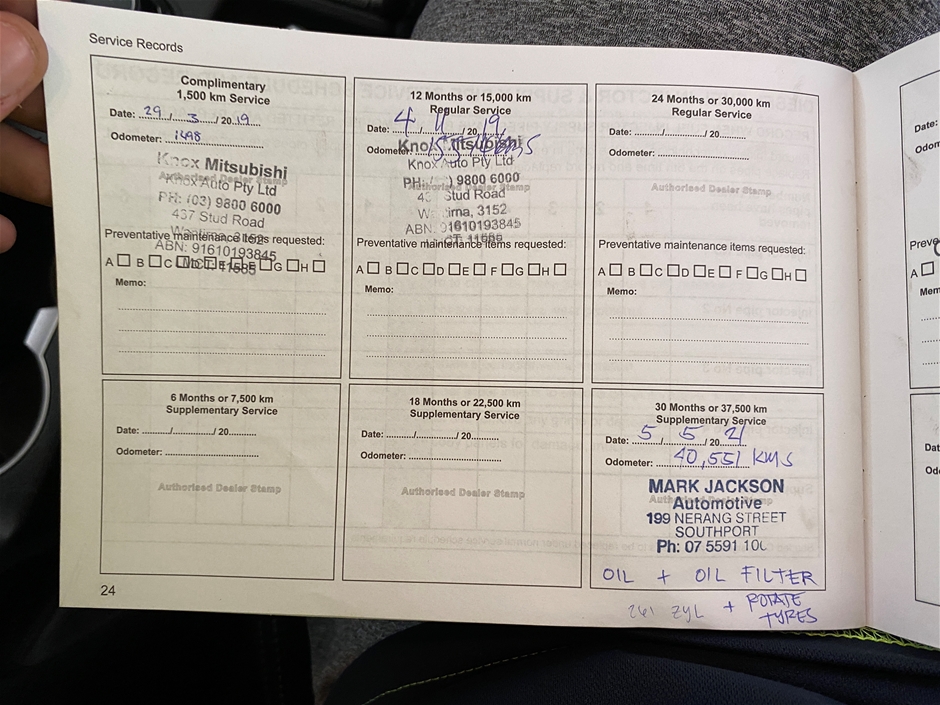 Service Records
Complimentary
1,500 km Service
Date: 29/3/2019
Odometer: 1498
Knox Mitsubishi
Authorised Dealer Stamp
Knox Auto Pty Ltd
PH: (03) 9800 6000
437 Stud Road
Wantirna 3152
ABN: 91610193845
Preventative maintenance items requested:
A B C D E F G H
Memo:
12 Months or 15,000 km
Regular Service
Date: 4/11/2019
Odometer: kms
Knox Mitsubishi
Knox Auto Pty Ltd
PH: ) 9800 6000
Authorised Dealer Stamp
Stud Road
3152
ABN: 91610193845
Preventative maintenance items requested:
A B C D E F G H
Memo:
24 Months or 30,000 km
Regular Service
Date: ........../............../ 20..........
Odometer: ...................................
Authorised Dealer Stamp
Preventative maintenance items requested:
A B C D E F G H
Memo:
6 Months or 7,500 km
Supplementary Service
Date: ........../............../ 20..........
Odometer: ...................................
Authorised Dealer Stamp
18 Months or 22,500 km
Supplementary Service
Date: ........../............../ 20..........
Odometer: ...................................
Authorised Dealer Stamp
30 Months or 37,500 km
Supplementary Service
Date: 5/5/2021
Odometer: 40,551 KMS
MARK JACKSON
Automotive
199 NERANG STREET
SOUTHPORT
Ph: 07 5591 10
OIL + OIL FILTER
261 ZYL + ROTATE
TYRES
24